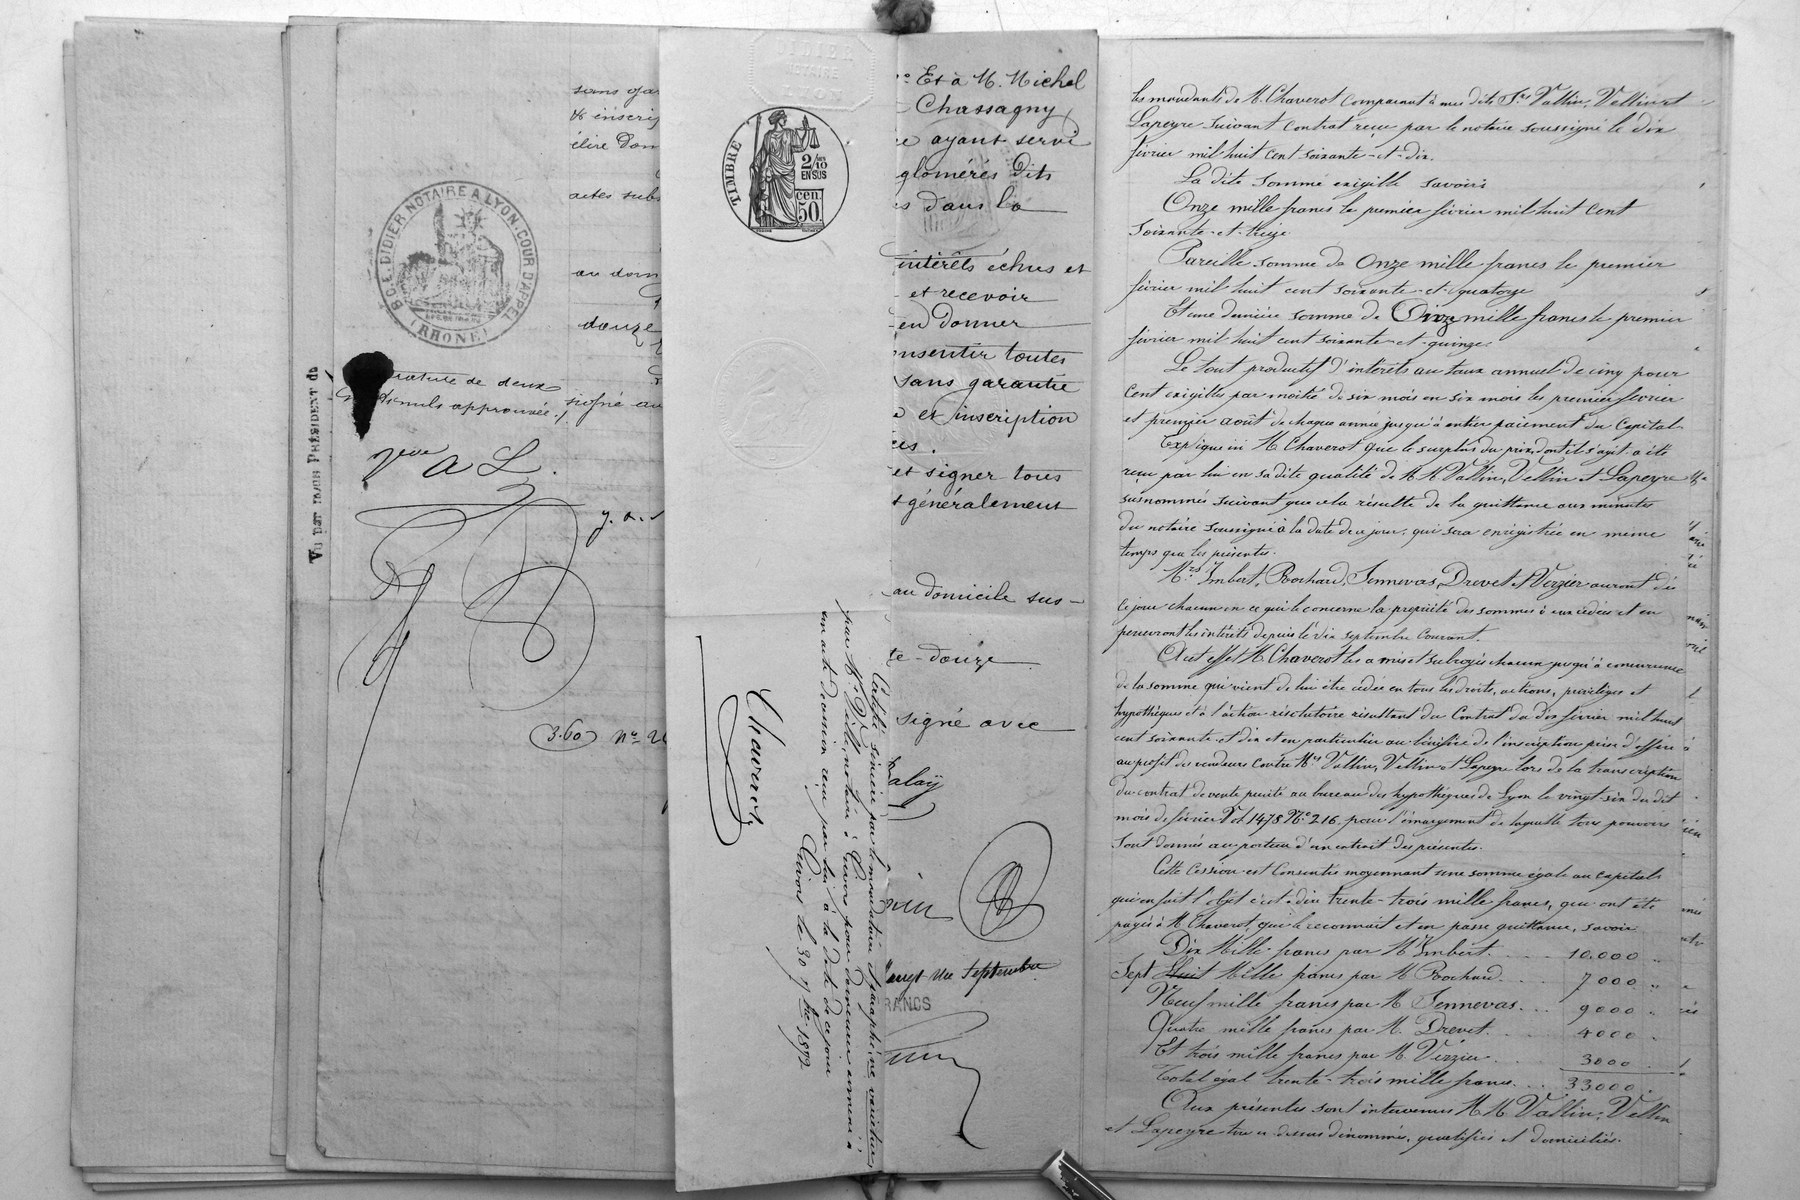 sans ga
& inscrip
élire dom
actes subs
au dom
douze
BG. E. DIDIER NOTAIRE A LYON. COUR D'APPEL
(RHONE)
rature de deux
mots nuls approuvée./.
signé au
Vu par nous PRÉSIDENT du
7eve A L.
3.60 No 2
DIDIER
NOTAIRE
LYON
TIMBRE
2/10
EN SUS
50 cen.
Certifié sincère par le mandataire & paraphé ne varietur
par Me Vieille, notaire à Givors pour demeurer annexé à
un acte de cession reçu par lui à la date de ce jour
Givors le 30 7bre 1872
Chaverot
Et à M. Michel
Chassagny
ayant servi
glomérés dits
s dans la
intérêts échus et
et recevoir
en donner
onsentir toutes
sans garantie
et inscription
es.
et signer tous
t généralement
au domicile sus-
te-douze.
signé avec
alaÿ
Vingt un Septembre
FRANCS
les mandants de M. Chaverot comparant à mes dits Srs Vallin, Vellin et
Lapeyre suivant contrat reçu par le notaire soussigné le dix
février mil huit cent soixante-et-dix.
La dite somme exigible savoir:
Onze mille francs le premier février mil huit cent
soixante-et-treize
Pareille somme de Onze mille francs le premier
février mil huit cent soixante-et-quatorze
Et une dernière somme de Onze mille francs le premier
février mil huit cent soixante-et-quinze.
Le tout productif d'intérêts au taux annuel de cinq pour
cent exigibles par moitié de six mois en six mois les premier février
et premier août de chaque année jusqu'à entier paiement du Capital.
Explique ici M. Chaverot que le surplus du prix dont il s'agit a été
reçu par lui en sa dite qualité de M. M. Vallin, Vellin et Lapeyre
susnommés suivant que cela résulte de la quittance aux minutes
du notaire soussigné à la date de ce jour, qui sera enregistrée en même
temps que les présentes.
Mrs Imbert, Rochard, Jennevas, Drevet & Vézzier auront dès
ce jour chacun en ce qui le concerne la propriété des sommes à eux cédées et en
percevront les intérêts depuis le dix septembre courant.
A cet effet M. Chaverot les a mis et subrogés chacun jusqu'à concurrence
de la somme qui vient de lui être cédée en tous les droits, actions, privilèges et
hypothèques et à l'action résolutoire résultant du Contrat du dix février mil huit
cent soixante et dix et en particulier au bénéfice de l'inscription prise d'office
au profit des vendeurs contre Mrs Vallin, Vellin et Lapeyre lors de la transcription
du contrat de vente précité au bureau des hypothèques de Lyon le vingt-six du dit
mois de février Vol 1478 No 216, pour l'émargement de laquelle tous pouvoirs
sont donnés au porteur d'un extrait des présentes.
Cette Cession est Consentie moyennant une somme égale au capital
qui en fait l'objet c'est à dire trente-trois mille francs, que ont été
payés à M. Chaverot, qui le reconnaît et en passe quittance, savoir
Dix Mille francs par M. Imbert . . . . 10.000 "
Sept Huit Mille francs par M. Rochard . . . 7000 "
Neuf mille francs par M. Jennevas . . . 9000 "
Quatre mille francs par M. Drevet . . . 4000 "
Et trois mille francs par M. Vézzier . . . 3000 "
Total égal trente-trois mille francs . . . 33000 "
Aux présentes sont intervenus M. M. Vallin, Vellin
et Lapeyre tous ci dessus dénommés, qualifiés et domiciliés.